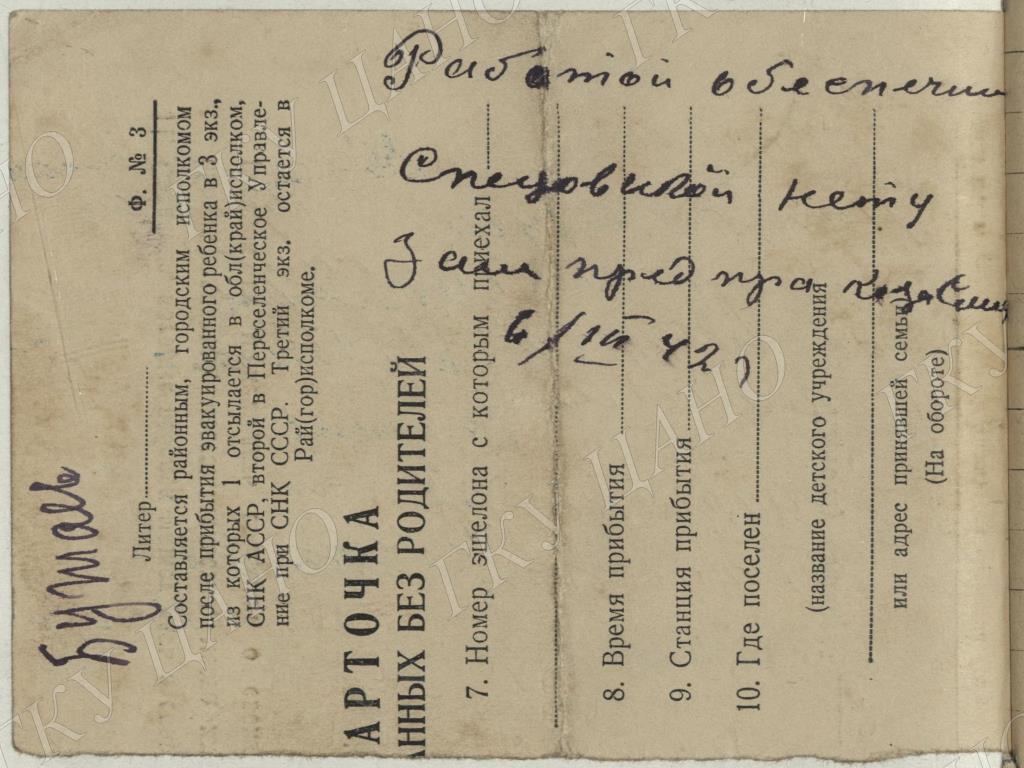 Бужаев
Ф. № 3
Литер
Составляется районным, городским исполкомом
после прибытия эвакуированного ребенка в 3 экз.,
из которых 1 отсылается в обл(край)исполком,
СНК АССР, второй в Переселенческое Управле-
ние при СНК СССР. Третий экз. остается в
Рай(гор)исполкоме.
АРТОЧКА
АННЫХ БЕЗ РОДИТЕЛЕЙ
7. Номер эшелона с которым приехал
8. Время прибытия
9. Станция прибытия
10. Где поселен
(название детского учреждения
или адрес принявшей семьи)
(На обороте)
Работой обеспечим
Спецовкой нету
Зам пред пра
6/III 42
ГКУ ЦАНО